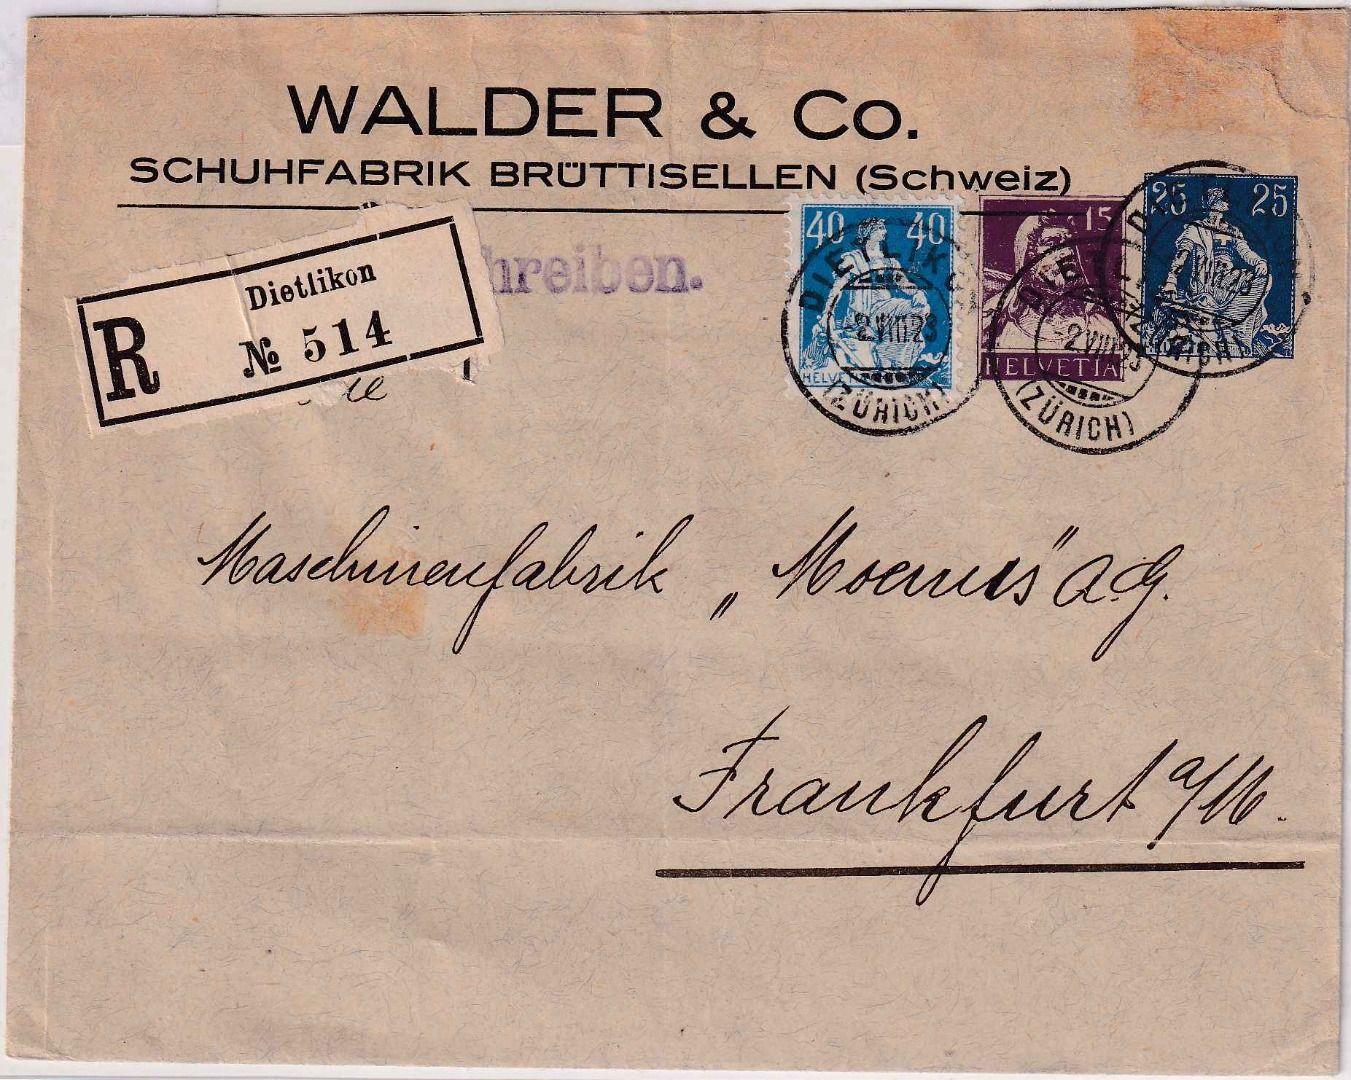 WALDER & Co.
SCHUHFABRIK BRÜTTISELLEN (Schweiz)
40 40
HELVETIA
15
HELVETIA
25 25
DIETLIKON
-2.VIII.23
(ZÜRICH)
DIETLIKON
-2.VIII.23
(ZÜRICH)
DIETLIKON
-2.VIII.23
(ZÜRICH)
R Dietlikon
№ 514
hreiben.
Maschinenfabrik „Moenus" A.G.
Frankfurt a/M.